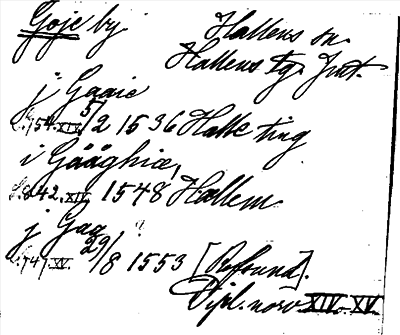 Goje by. Hallens sn.
Hallens tg. Jmt.
j Gaaie
s. 154. XIV. 5/2 1536 Halle ting
i Gååghiæ,
s. 842. XIV. 1548 Hallem
j Gag
s. 747. XV. 29/8 1553 [Rofsund].
Dipl. norv. XIV. XV.